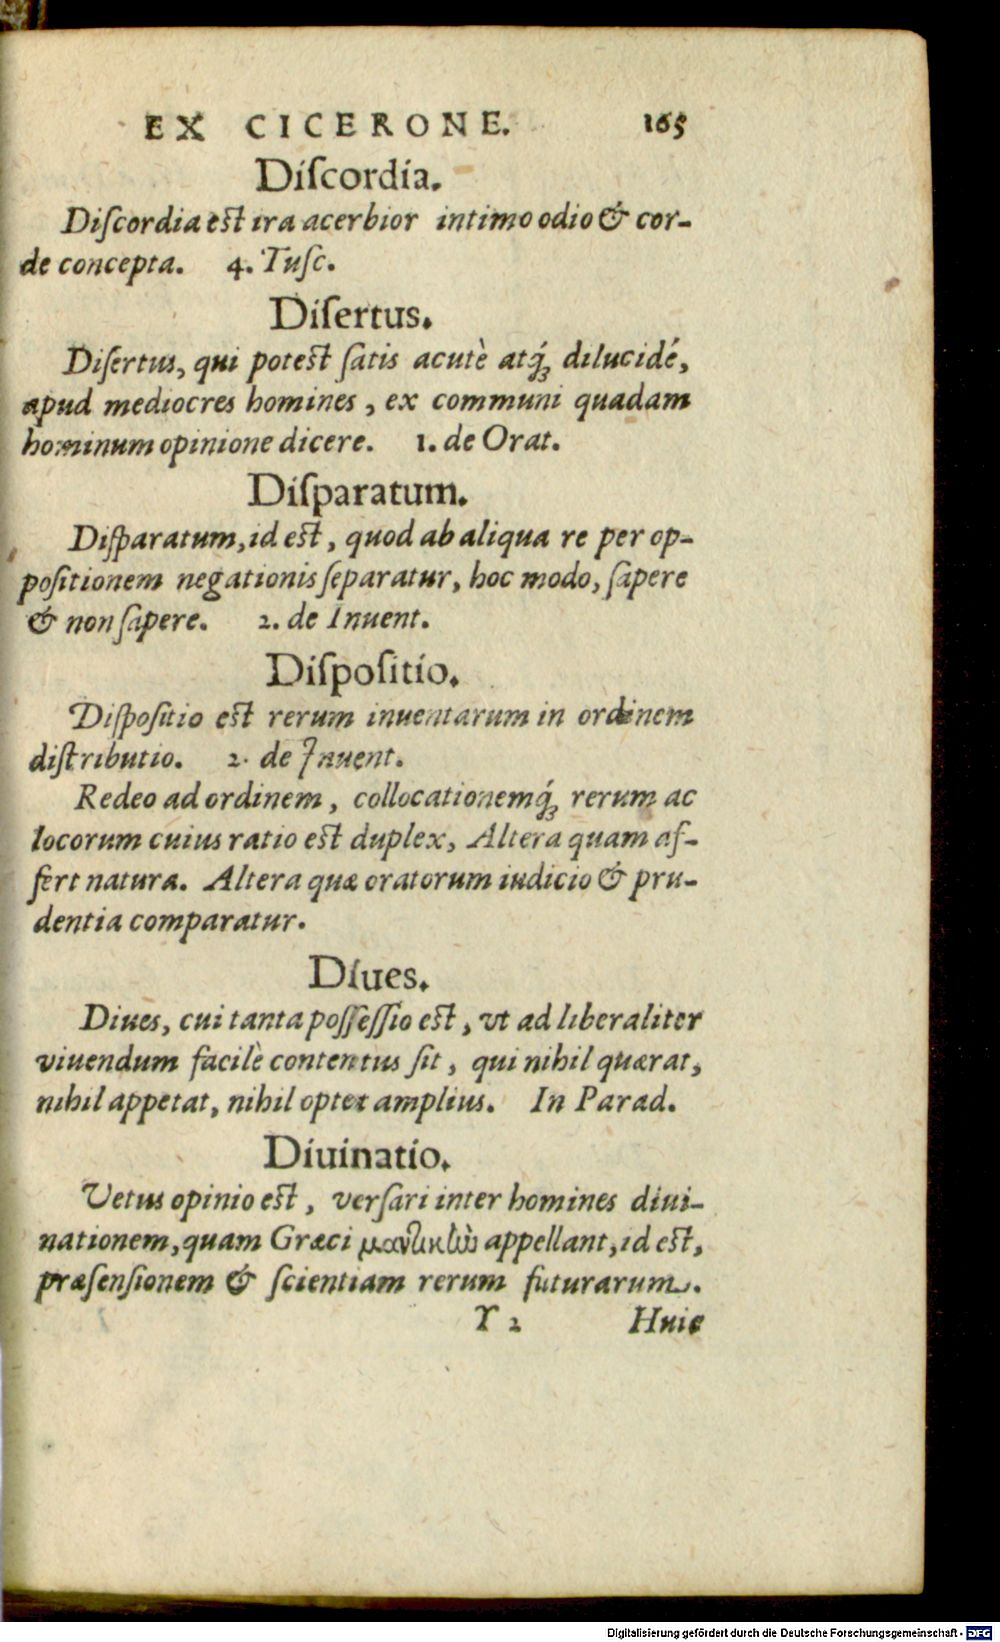 EX CICERONE. 165
Diſcordia.
Diſcordia est ira acerbior intimo odio & cor-
de concepta. 4. Tuſc.
Diſertus.
Diſertus, qui potest ſatis acutè atq́; dilucidé,
apud mediocres homines, ex communi quadam
hominum opinione dicere. 1. de Orat.
Diſparatum.
Diſparatum, id est, quod ab aliqua re per op-
poſitionem negationis ſeparatur, hoc modo, ſapere
& non ſapere. 2. de Inuent.
Diſpoſitio.
Diſpoſitio est rerum inuentarum in ordinem
diſtributio. 2. de Inuent.
Redeo ad ordinem, collocationemq́; rerum ac
locorum cuius ratio est duplex, Altera quam af-
fert natura. Altera quæ oratorum iudicio & pru-
dentia comparatur.
Diues.
Diues, cui tanta poſſeſſio est, vt ad liberaliter
viuendum facilè contentus ſit, qui nihil quærat,
nihil appetat, nihil optet amplius. In Parad.
Diuinatio.
Vetus opinio est, verſari inter homines diui-
nationem, quam Græci μαντικὴν appellant, id est,
præſenſionem & ſcientiam rerum futurarum.
Y 2 Huic
Digitalisierung gefördert durch die Deutsche Forschungsgemeinschaft - DFG